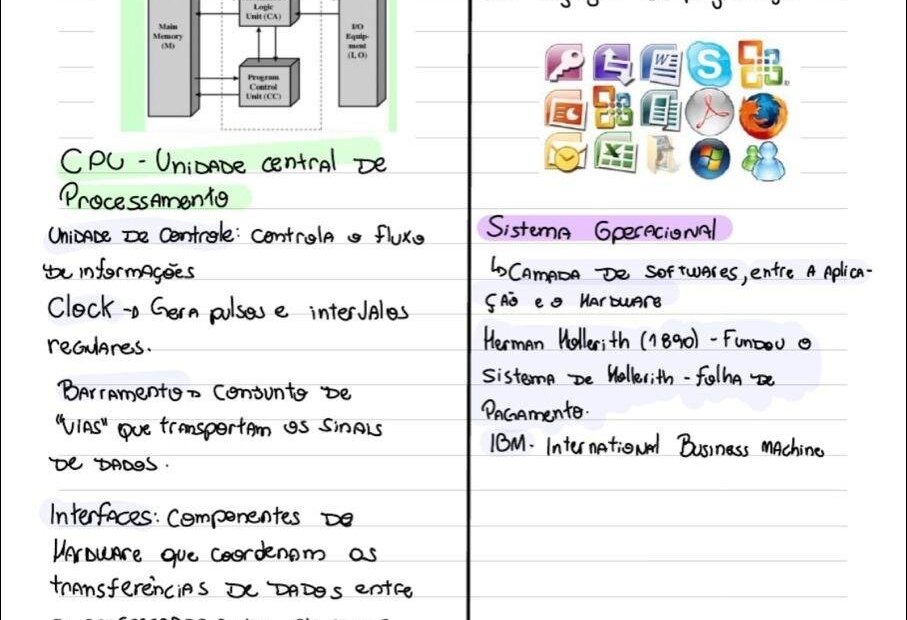 Logic
Unit (CA)
Main
Memory
(M)
I/O
Equip-
ment
(I, O)
Program
Control
Unit (CC)
CPU - Unidade central de
Processamento
Unidade de controle: controla o fluxo
de informações
Clock → Gera pulsos e intervalos
regulares.
Barramento → Conjunto de
"vias" que transportam os sinais
de dados.
Interfaces: Componentes de
Hardware que coordenam as
transferências de dados entre
Sistema Operacional
↳ Camada de softwares, entre a aplica-
ção e o Hardware
Herman Hollerith (1890) - Fundou o
sistema de Hollerith - folha de
Pagamento.
IBM - International Business Machine